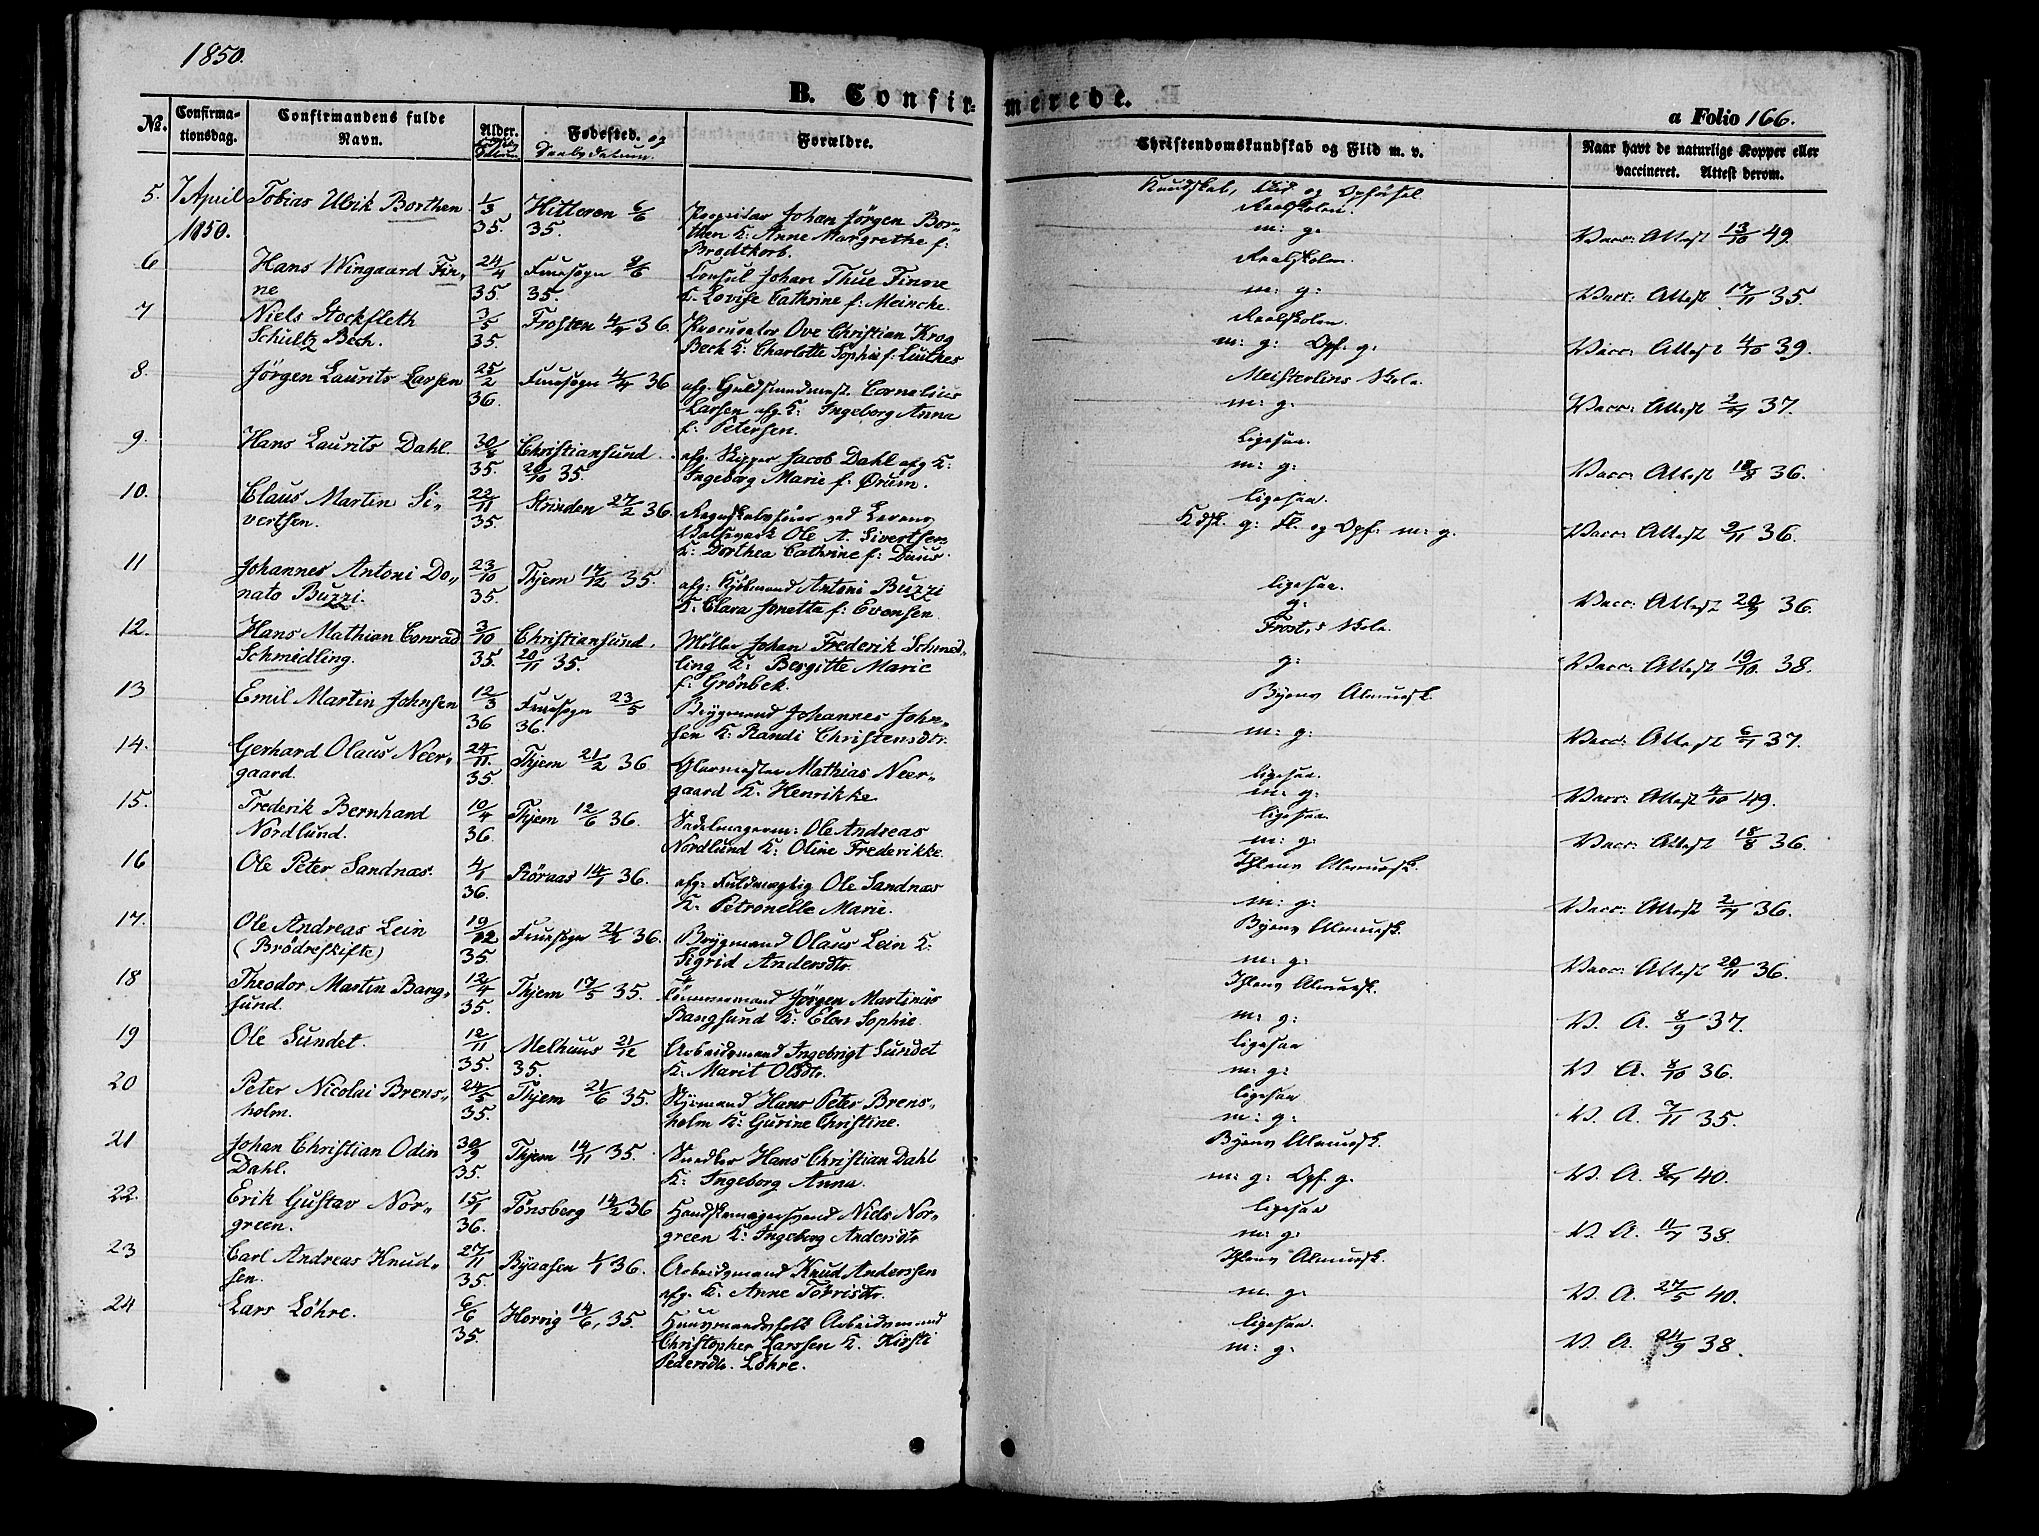 1850.
B. Confir-
merede.
a Folio 166.
No.
Confirma-
tionsdag.
Confirmandens fulde
Navn.
Alder.
Datum.
Fødested. og
Daabsdatum.
Forældre.
Christendomskundskab og Flid m. v.
Naar havt de naturlige Kopper eller
vaccineret. Attest derom.
Kundskab, Flid og Opførsel
5. 7 April Tobias Ulrik Borthen 1/3 Hitteren 6/6 Johan Jørgen Bor- Realskolen.
1850. 35. 35. then K: Anne Margrethe f: m: g: Vacc: Attest 13/10 49
Brodtkorb.
6 Hans Wingaard Fin- 24/4 Fruesogn 8/6 Consul Johan Thue Finne Realskolen.
ne 35. 35. K: Lovise Cathrine f: Meincke. m: g: Vacc: Attest 17/11 35.
7 Niels Stockfleth 3/5 Frosten 4/4 36. Procurator Ove Christian Krog Realskolen.
Schultz Bech. 35. Bech K: Charlotte Sophie f: m: g: Opf: g: Vacc: Attest 4/10 39.
8. Jørgen Laurits Larsen 25/2 Fruesogn 4/4 36 afg. Guldsmedmest. Cornelius Meisterlins Skole.
36. Larsen afg. K: Ingeborg Anna m: g: Vacc: Attest 2/9 37.
f: Petersen.
9. Hans Laurits Dahl. 30/8 Christiansund. afg. Skipper Jacob Dahl afg K: Ligesaa.
35. 20/10 35. Ingeborg Marie f: Ørum. m: g: Vacc: Attest 18/8 36.
10. Claus Martin Si- 22/11 Strinden 27/2 36. Regnskabsfører ved ligesaa.
vertsen. 35 Ole A. Sivertsen Kdsk. g: Fl. og Opf. m: g. Vacc: Attest 9/11 36.
K: Dorthea Cathrine f: Daus.
11 Johannes Antoni Do- 23/10 Thjem 17/12 35. afg: Kjøbmand Antoni Buzzi ligesaa.
nato Buzzi. 35. K: Clara Jonetta f: Evensen. g: Vacc: Attest 20/9 36.
12. Hans Mathian Conrad 3/10 Christiansund. Møller Johan Frederik Schmed- Frost,s Skole.
Schmidling. 35. 20/11 35. ling K: Bergitte Marie g: Vacc: Attest 19/10 38.
f: Grönbek.
13 Emil Martin Johnsen 12/3 Fruesogn 23/5 Brygmand Johannes John- Byens Almuesk.
36 36. sen K: Randi Christensdtr. m: g: Vacc: Attest 6/7 37.
14. Gerhard Olaus Neer- 24/11. Thjem 21/2 36. Glarmester Mathias Neer- ligesaa.
gaard. 35. gaard K: Henrikke m: g: Vacc: Attest 4/10 49.
15. Frederik Bernhard 10/4 Thjem 12/6 36. Sadelmagerm: Ole Andreas ligesaa
Nordlund. 36. Nordlund K: Oline Frederikke. m: g: Vacc: Attest 18/8 36.
16 Ole Peter Sandnæs. 4/1 Röraas 14/1 36. afg: Fuldmægtig Ole Sandnæs Ihlens Almuesk.
36. K: Petronelle Marie. m: g: Vacc: Attest 2/9 36.
17. Ole Andreas Lein 19/12 Fruesogn 21/2 36. Brygmand Olaus Lein K: Byens Almuesk.
(Brødreskifte) 35. Sigrid Andersdtr. m: g: Vacc: Attest 20/11 36.
18 Theodor Martin Bang- 12/4 Thjem 17/5 35. Tömmermand Jörgen Martinus Ihlens Almuesk.
sund. 35. Bangsund K: Elen Sophie. m: g: V. A. 8/9 37.
19 Ole Sundet. 12/11 Melhuus 21/12 Arbeidsmand Ingebrigt Sundet ligesaa
35. 35. K: Marit Olsdtr. m: g: V. A. 8/10 36.
20 Peter Nicolai Brens- 24/5 Thjem 21/6 35. Styrmand Hans Peter Brens- ligesaa
holm. 35. holm K: Gurine Christine. m: g: V. A. 7/11 35.
21 Johan Christian Odin 30/9 Thjem 14/11 35. Snedker Hans Christian Dahl Byens Almuesk.
Dahl. 35. K: Ingeborg Anna. m: g: Opf. g. V. A. 40.
22. Erik Gustav Nor- 15/1 Tönsberg 14/2 36 Handskemagersvend Niels Nor- ligesaa
green. 36. green K: Ingeborg Andersdtr m: g: V. A. 11/7 38.
23 Carl Andreas Knud- 27/11 Byaasen 1/1 36. Arbeidsmand Knud Anderssen Ihlens Almuesk.
sen. 35. afg. K: Anne Torrisdtr. m: g: V. A. 27/5 40.
24 Lars Löhre. 6/6 Horrig 14/6, 35. Huusmandsfolk Arbeidsmand ligesaa.
35. Christopher Larssen K. Kirsti m: g: V. A. 24/9 38.
Pedersdtr. Löhre.